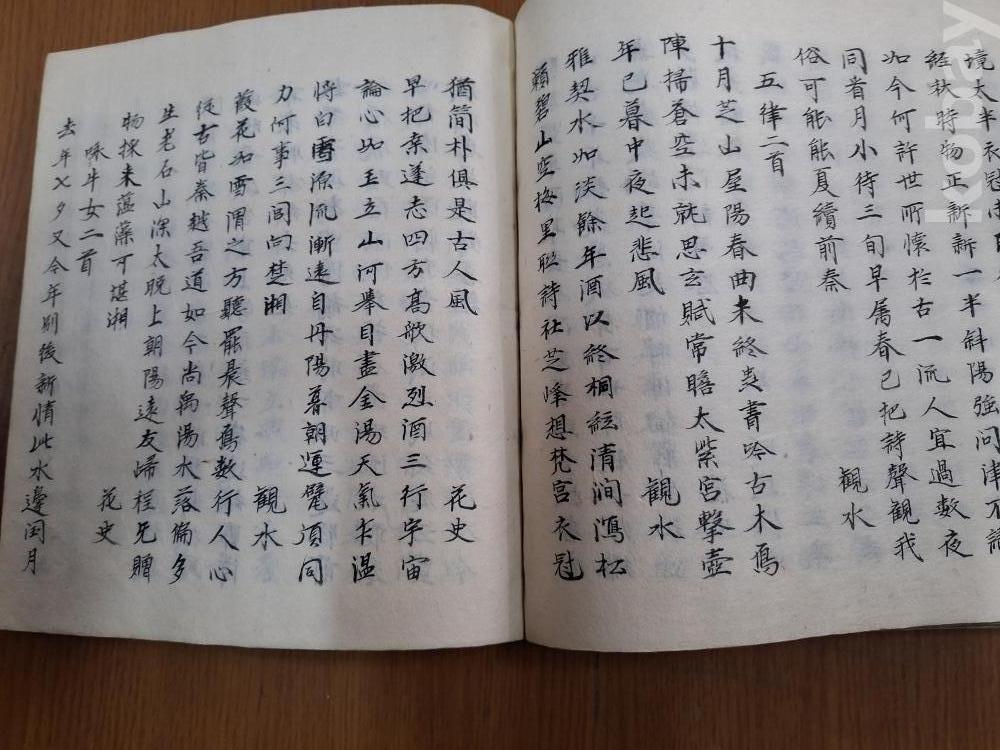 境大半衣冠
経秋時物正新新一半斜陽強問津不
如今何許世所懐於古一流人宜過数夜
同看月小待三旬早属春已把詩聲観我
俗可能能夏續前秦
觀水
五律二首
十月芝山屋陽春曲未終蛩書吟古木鴈
陣掃蒼空未就思玄賦常瞻太紫宮撃壺
年已暮中夜起悲風
觀水
雅契水如淡餘年酒以終桐絃清澗瀉松
籟碧山空梅里聯詩社芝峰想梵宮衣冠
猶簡朴俱是古人風
花史
早把桑蓬志四方高歌激烈酒三行宇宙
論心如玉立山河擧目盡金湯天氣乍温
将白露湌流漸遠自丹陽暮朝運甓頂同
力何事三閭向楚湘
觀水
葭花如雪渭之方聽罷晨聲鴈数行人心
従古皆秦越吾道如今尚禹湯水落偏多
生老石山深太晚上朝陽遠友歸程无贈
物採来薀藻可堪湘
花史
咏牛女二首
去年七夕又今年別後新情此水邊閏月